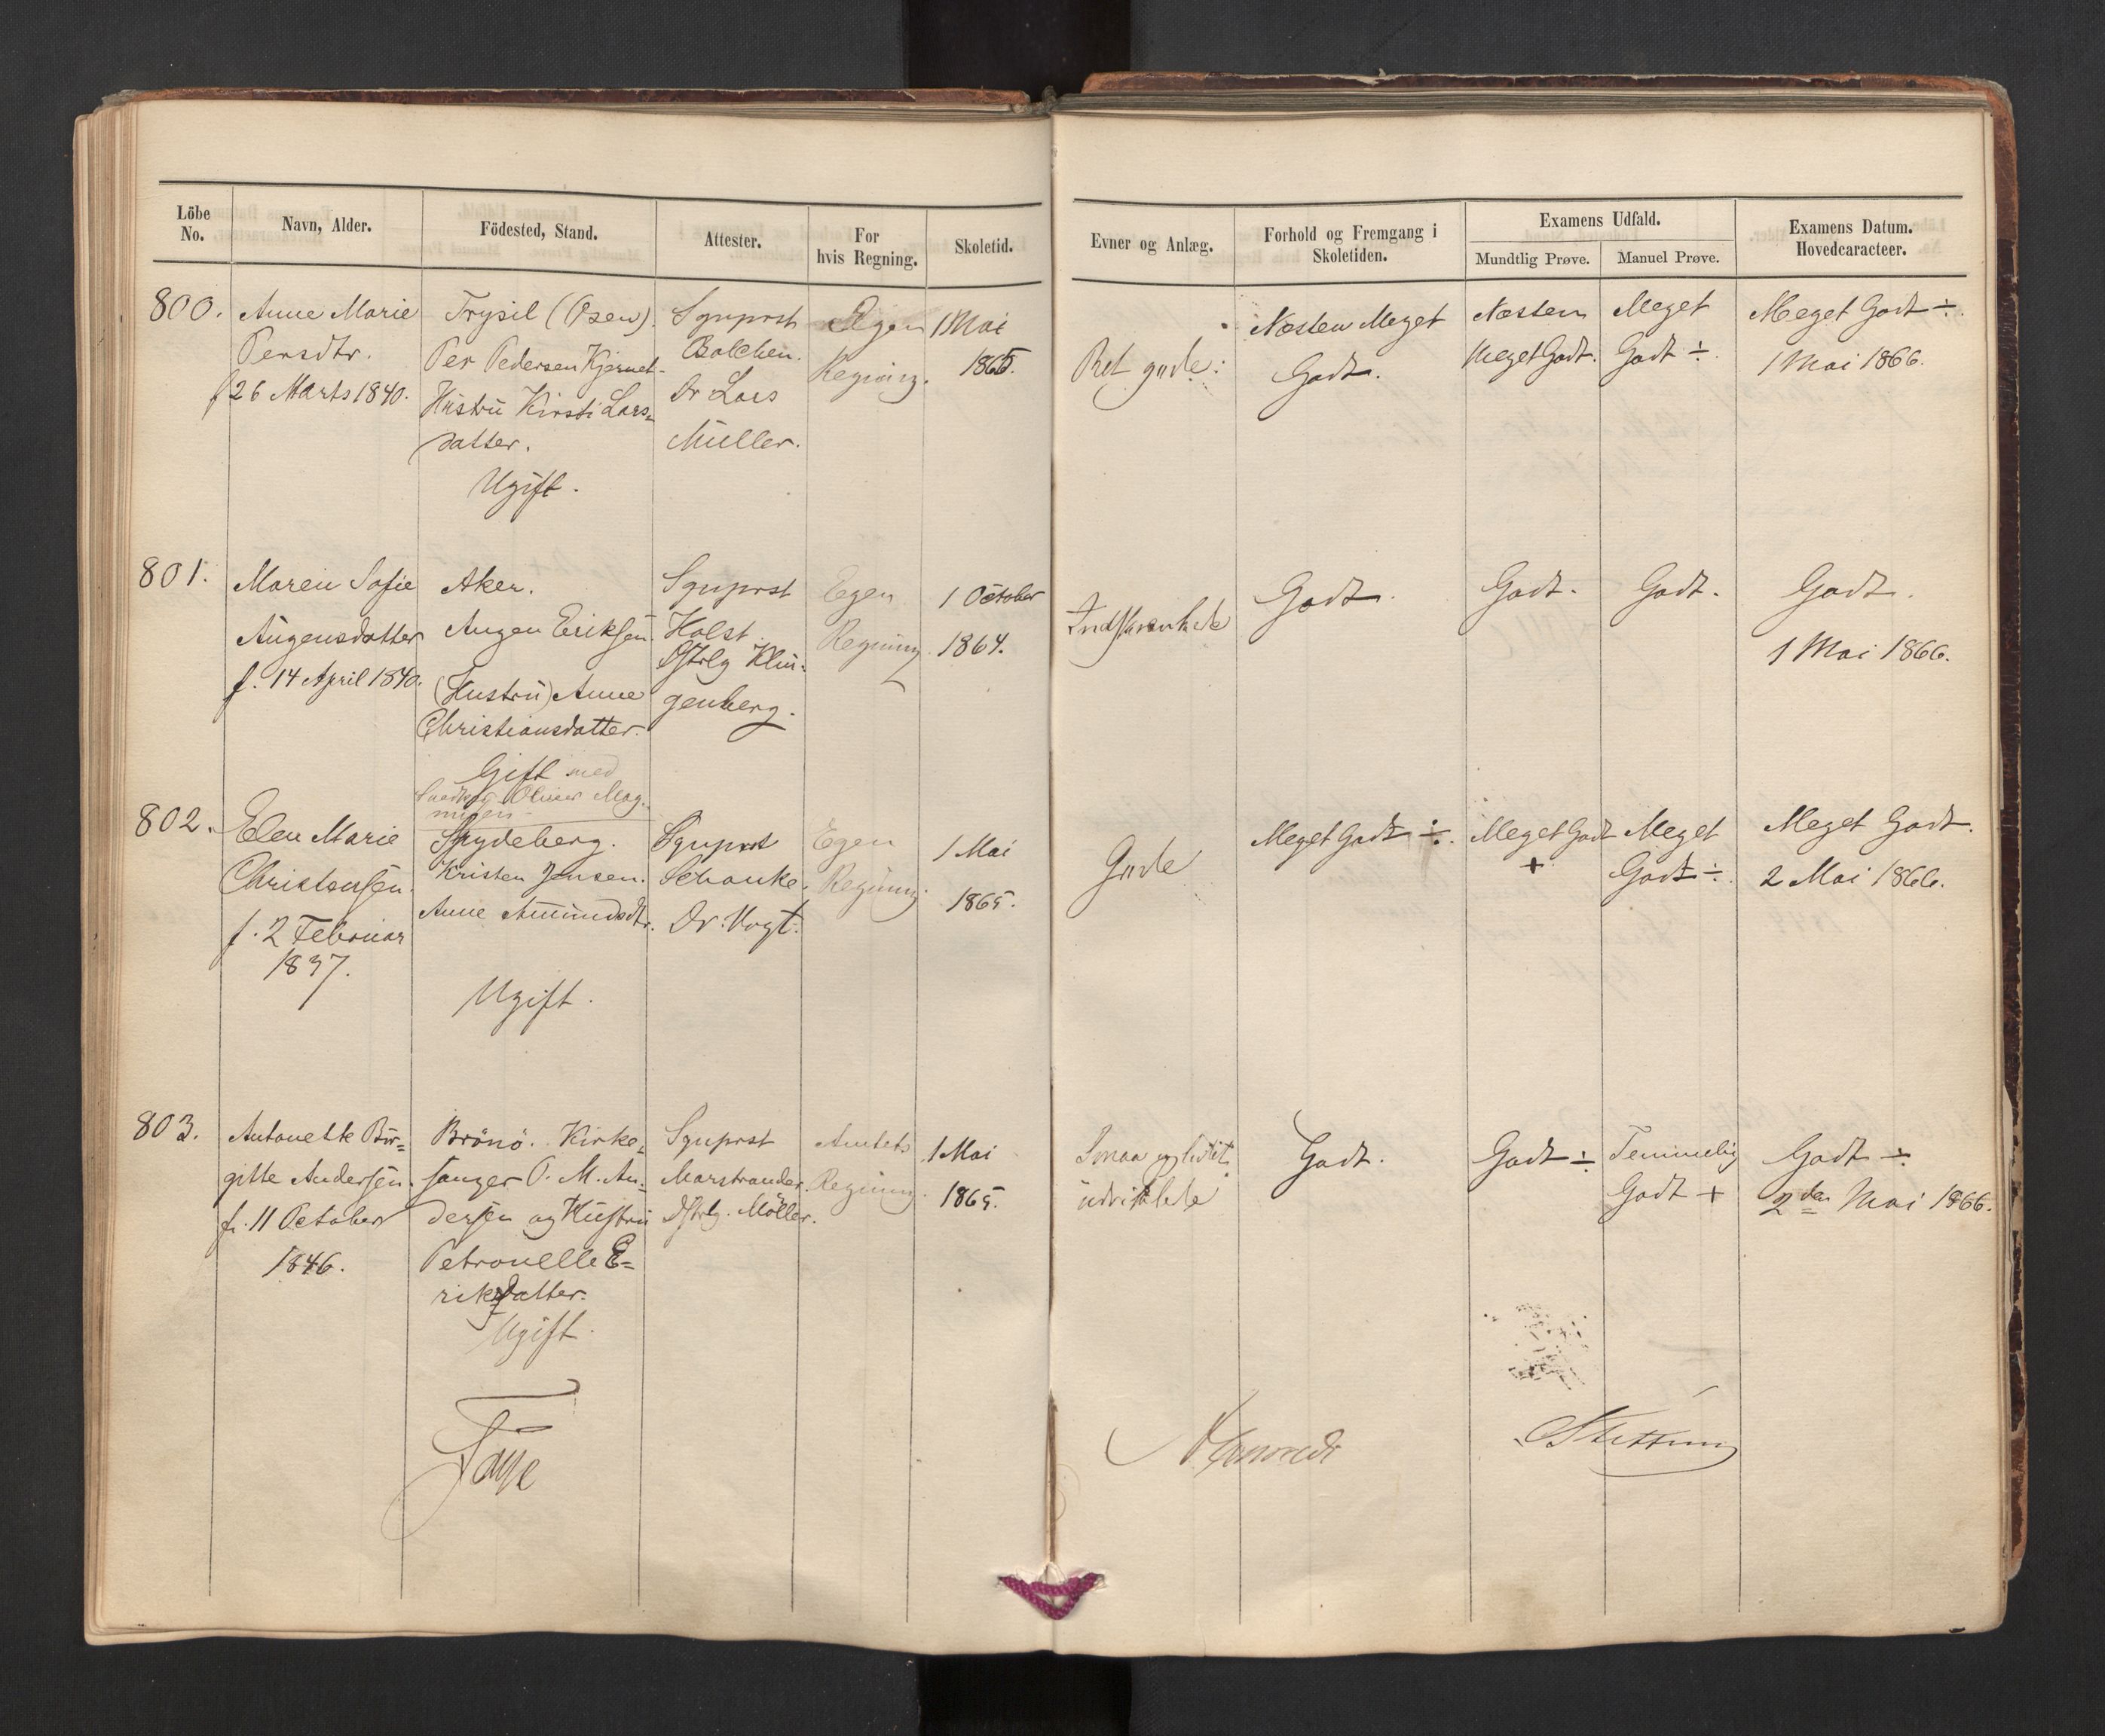 Löbe No.
Navn, Alder.
Födested, Stand.
Attester.
For hvis Regning.
Skoletid.
Evner og Anlæg.
Forhold og Fremgang i Skoletiden.
Examens Udfald.
Mundtlig Prøve.
Manuel Prøve.
Examens Datum. Hovedcaracteer.
800.
Anne Marie
Persdtr.
f 26 Marts 1840.
Trysil (Osen).
Per Pedersen Kjernet-
Hustru Kirsti Lars-
datter.
Ugift.
Sgnprst
Bolchen.
Dr Lars
Müller.
Egen
Regning.
1 Mai
1865.
Ret gode.
Næsten Meget
Godt.
Næsten
Meget Godt.
Meget
Godt ÷.
Meget Godt ÷.
1 Mai 1866.
801.
Maren Sofie
Augensdatter
f. 14 April 1840.
Aker.
Augen Eriksen.
(Hustru) Anne
Christiansdatter.
Gift med
Oluser Mag-
nusen
Sgnprst
Holst.
Dstrlg Klin-
genberg.
Egen
Regning.
1 October
1864.
Indskrænkede
Godt.
Godt.
Godt.
Godt.
1 Mai 1866.
802.
Elen Marie
Christensen.
f. 2 Februar
1837.
Spydeberg.
Kristen Jensen.
Anne Amundsdtr.
Ugift.
Sgnprst
Schanke.
Dr. Vogt.
Egen
Regning.
1 Mai
1865.
Gode
Meget Godt ÷.
Meget Godt
+
Meget
Godt ÷.
Meget Godt.
2 Mai 1866.
803.
Antonette Bir-
gitte Andersen.
f. 11 October
1846.
Brönö. Kirke-
sanger O. M. An-
dersen og Hustru
Petronelle E-
riksdatter.
Ugift.
Sgnprst
Marstrander.
Dstrlg. Möller.
Amtets
Regning.
1 Mai
1865.
Smaa og lidet
udviklede
Godt.
Godt ÷
Temmelig
Godt +
Godt ÷
2den Mai 1866.
Faye